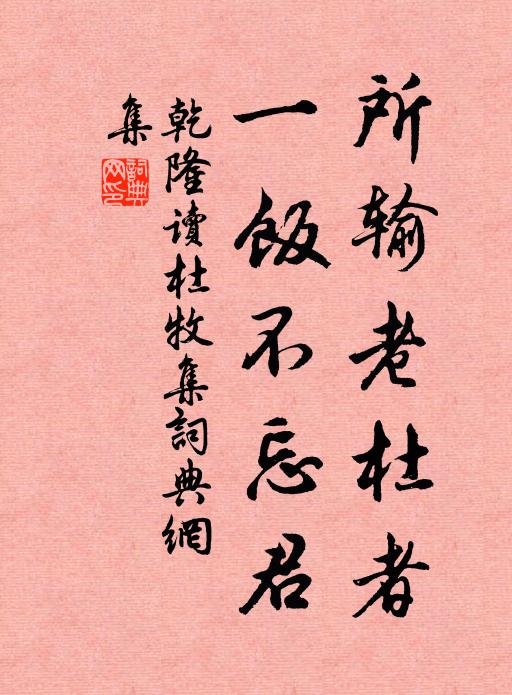 所输老杜者
一饭不忘君
乾隆读杜牧集詞典網
集
詞典
网印